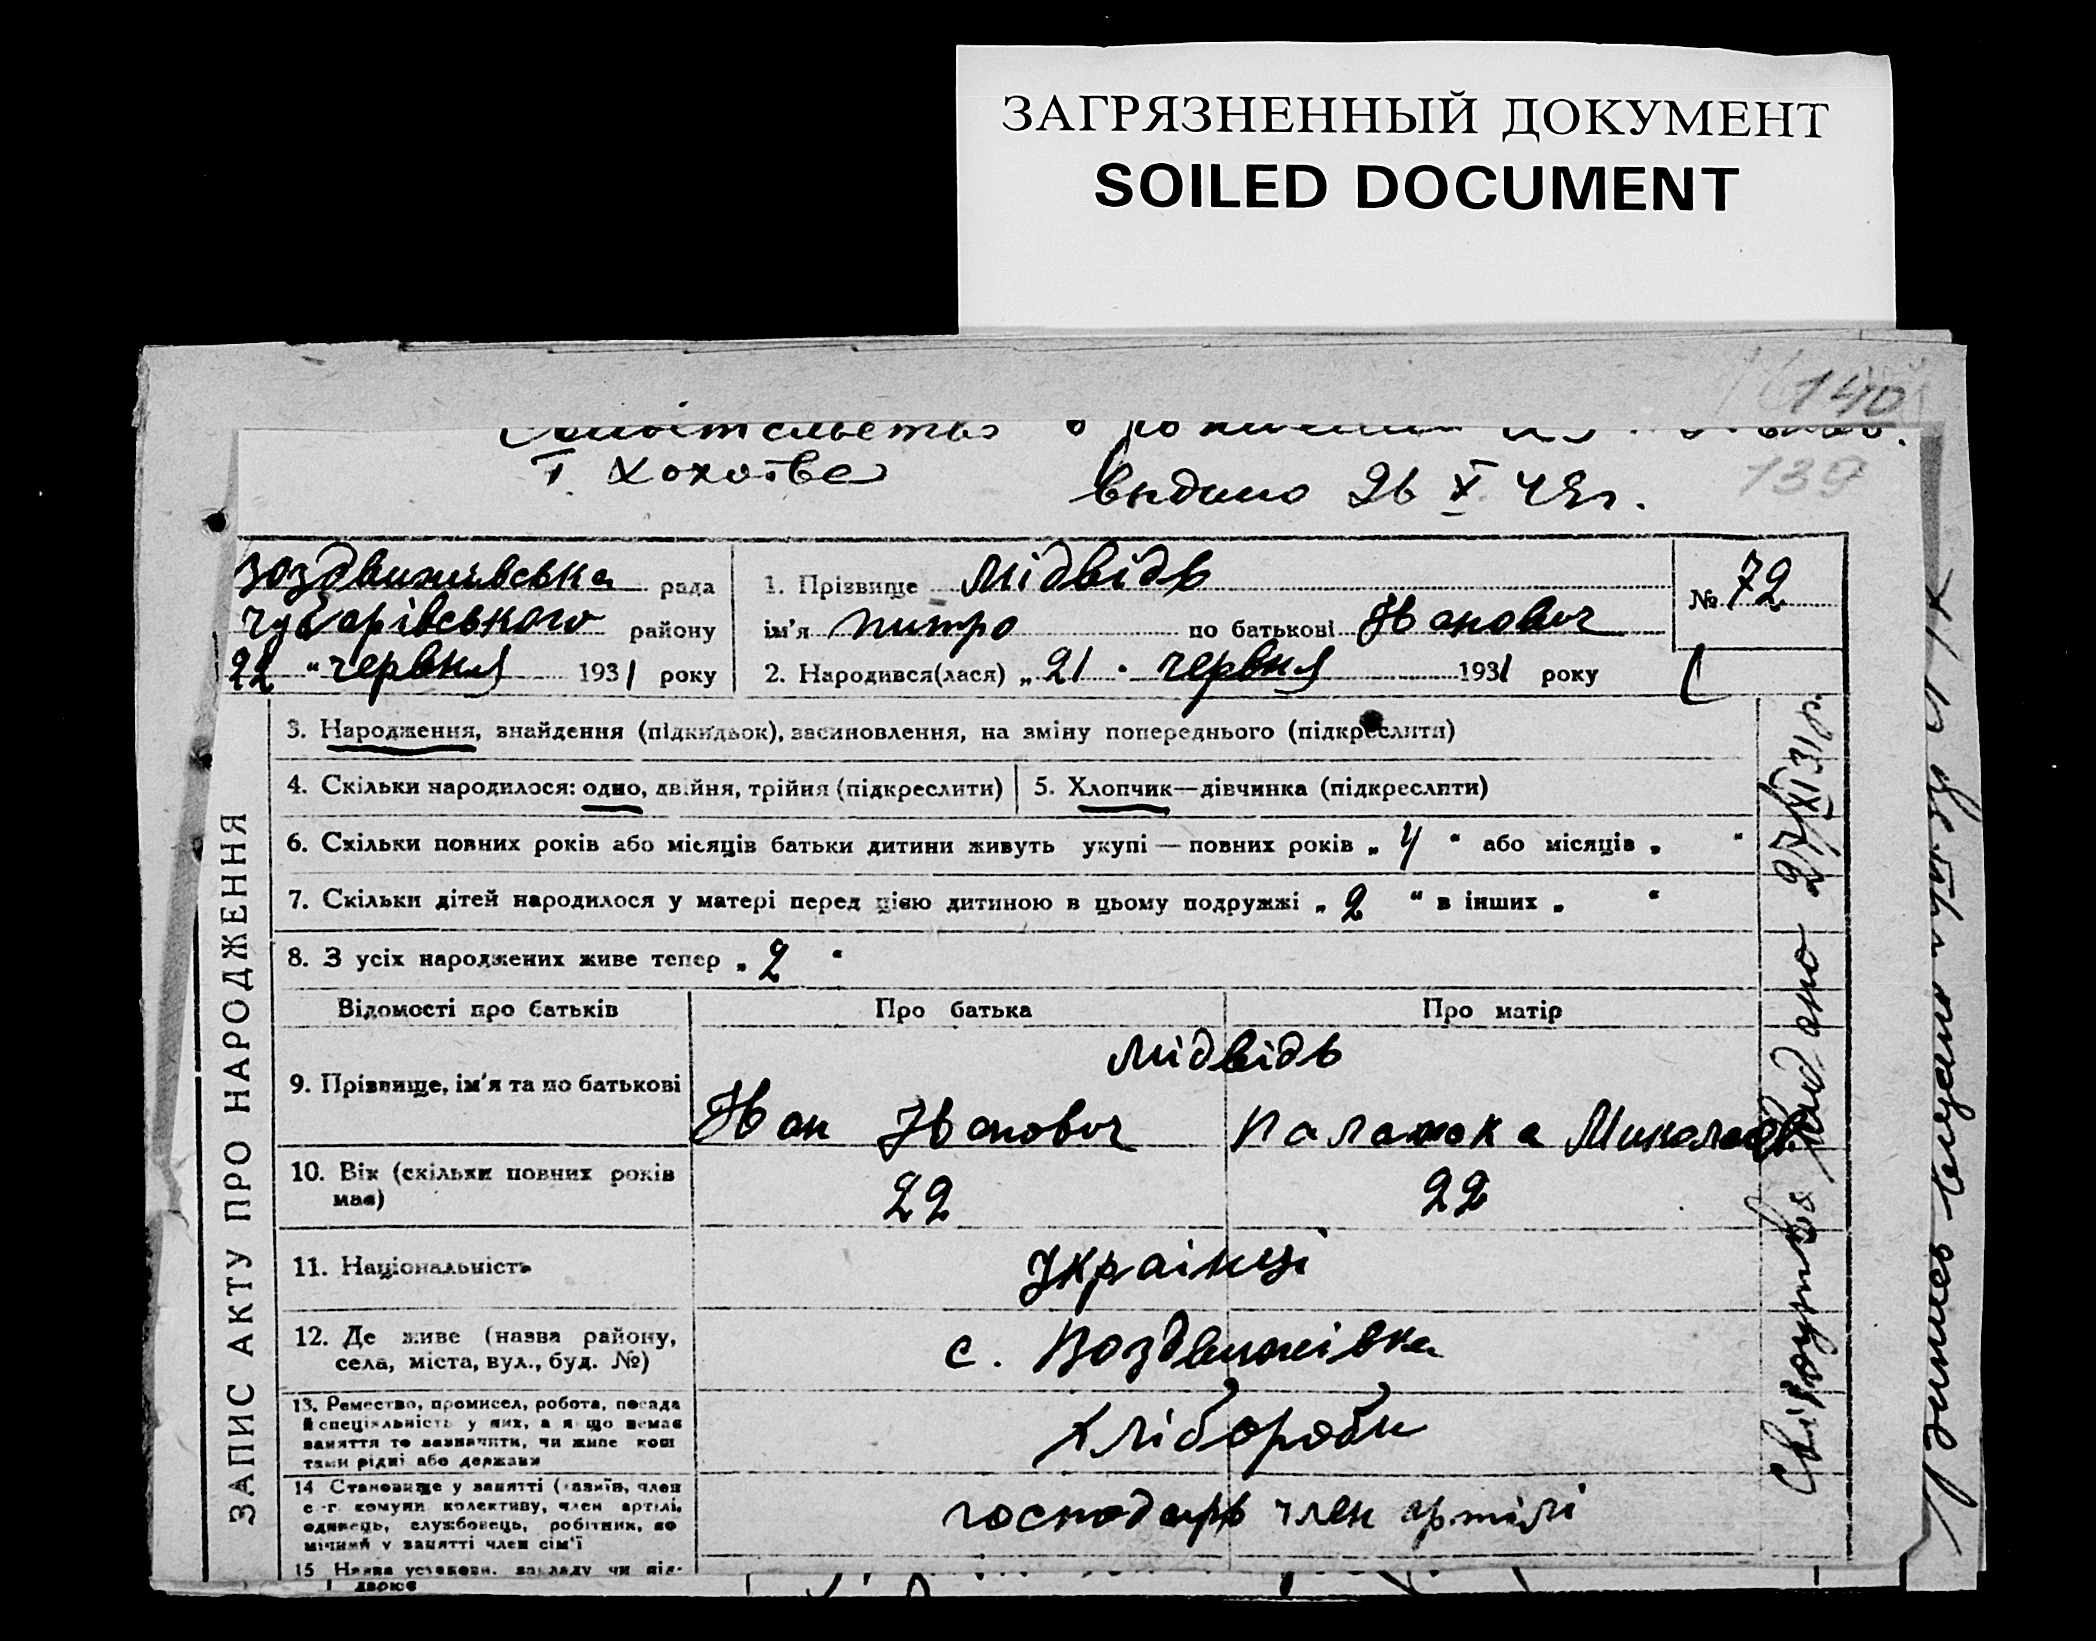 ЗАГРЯЗНЕННЫЙ ДОКУМЕНТ
SOILED DOCUMENT
140
139
выдано 26 X 49 г.
Воздвижівська рада
Чубарівського району
22 " червня 1931 року
1. Прізвище Мідвідь
ім'я Питро по батькові Іванович
2. Народився(лася) „ 21 " червня 1931 року
№ 72
3. Народження, знайдення (підкидьок), засиновлення, на зміну попереднього (підкреслити)
4. Скільки народилося: одно, двійня, трійня (підкреслити)
5. Хлопчик—дівчинка (підкреслити)
6. Скільки повних років або місяців батьки дитини живуть укупі — повних років „ 4 " або місяців „ "
7. Скільки дітей народилося у матері перед цією дитиною в цьому подружжі „ 2 " в інших „ "
8. З усіх народжених живе тепер „ 2 "
ЗАПИС АКТУ ПРО НАРОДЖЕННЯ
Відомості про батьків
Про батька
Про матір
9. Прізвище, ім'я та по батькові
Мідвідь
Іван Іванович
Палажка Миколаєв
10. Вік (скільки повних років
має)
22
22
11. Національність
Українці
12. Де живе (назва району,
села, міста, вул., буд. №)
с. Воздвижівка
13. Ремество, промисел, робота, посада
й спеціяльність у них, а якщо немає
заняття то зазначити, чи живе кош
тами рідні або держави
Хлібороби
14 Становище у занятті (хазяїн, член
с.-г. комуни колективу, член артілі,
одинець, службовець, робітник, до
мічний у занятті член сім'ї
господарь член артілі
15 Назва установи, закладу чи під-
Свідоцтво видано 27/XI 31 р.